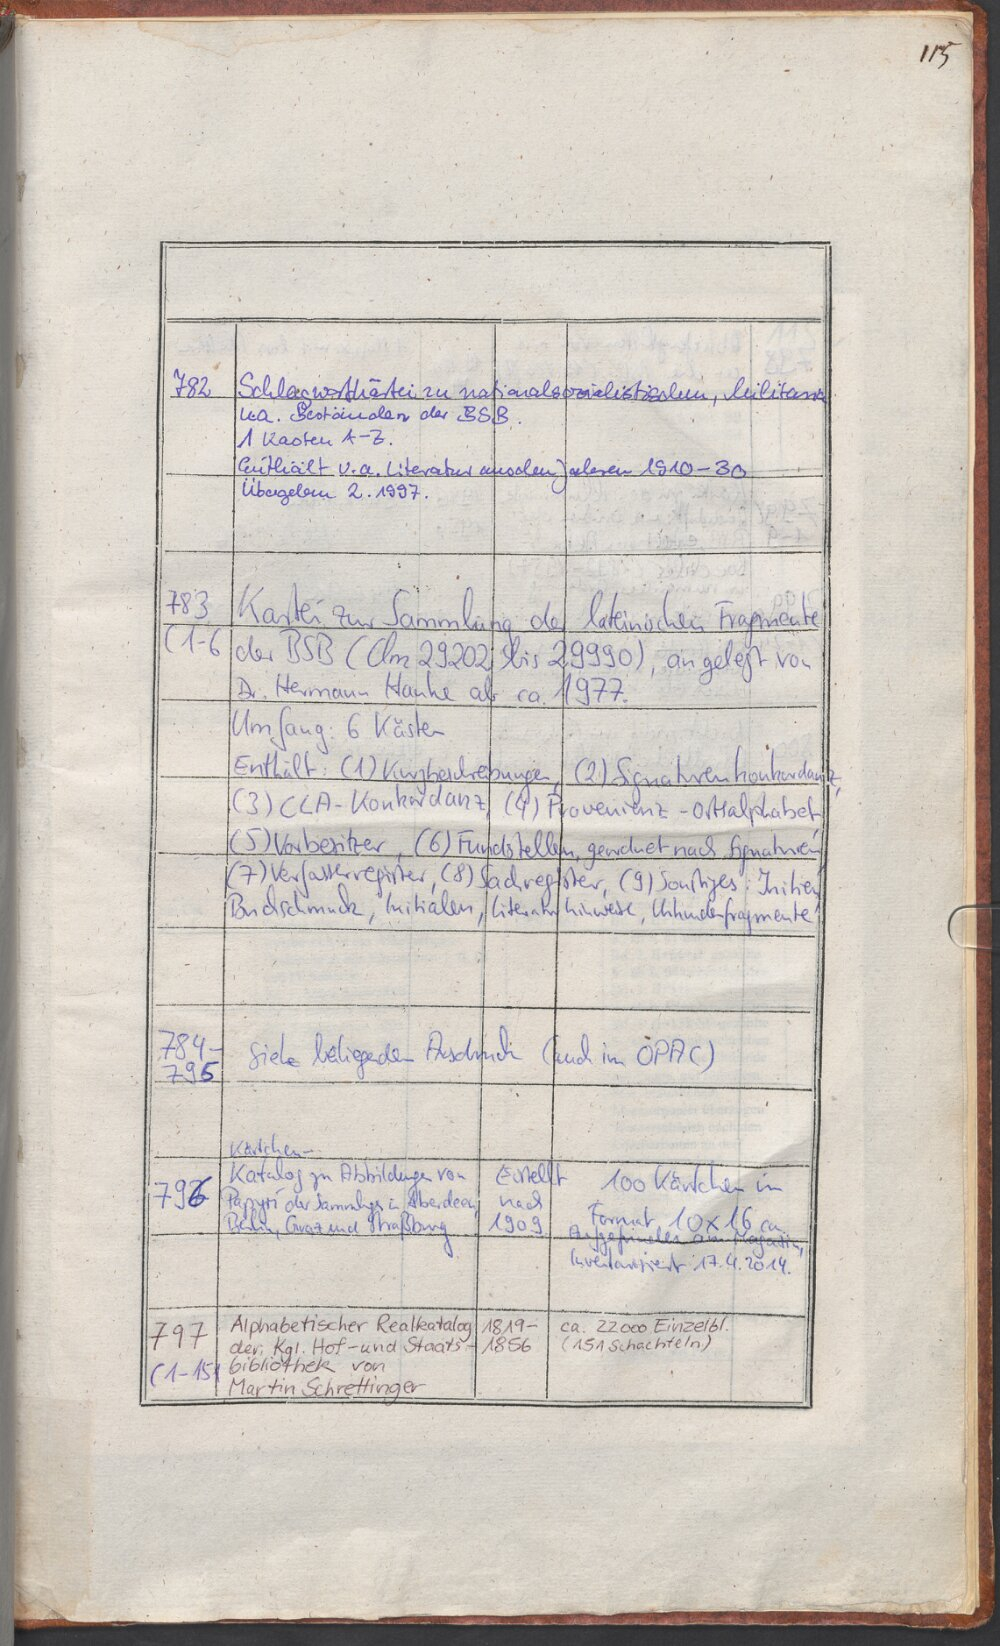 115
782 Schlagwortkartei zu nationalsozialistischen, Militaria
u.a. Beständen der BSB.
1 Kasten A-Z.
Enthält v.a. Literatur aus den Jahren 1910-30
Übergeben 2.1997.
783 Kartei zur Sammlung der lateinischen Fragmente
(1-6 der BSB (Clm 29202 bis 29990), angelegt von
Dr. Hermann Hauke ab ca. 1977.
Umfang: 6 Kästen
Enthält: (1) Kurzbeschreibungen, (2) Signaturenkonkordanz,
(3) CLA-Konkordanz, (4) Provenienz-Ortsalphabet,
(5) Vorbesitzer, (6) Fundstellen, geordnet nach Signaturen,
(7) Verfasserregister, (8) Sachregister, (9) Sonstiges: Initien,
Buchschmuck, Initialen, Literaturhinweise, Urkundenfragmente
784-
795 siehe beiliegenden Ausdruck (auch im OPAC)
Kärtchen-
796 Katalog zu Abbildungen von Erstellt 100 Kärtchen im
Papyri der Sammlungen in Aberdeen, nach
Berlin, Graz und Straßburg 1909 Format 10x16 cm
Aufgefunden im Magazin,
Inventarisiert 17.4.2014.
797 Alphabetischer Realkatalog 1819- ca. 22000 Einzelbl.
der Kgl. Hof- und Staats- 1856 (151 Schachteln)
(1-151 bibliothek von
Martin Schrettinger